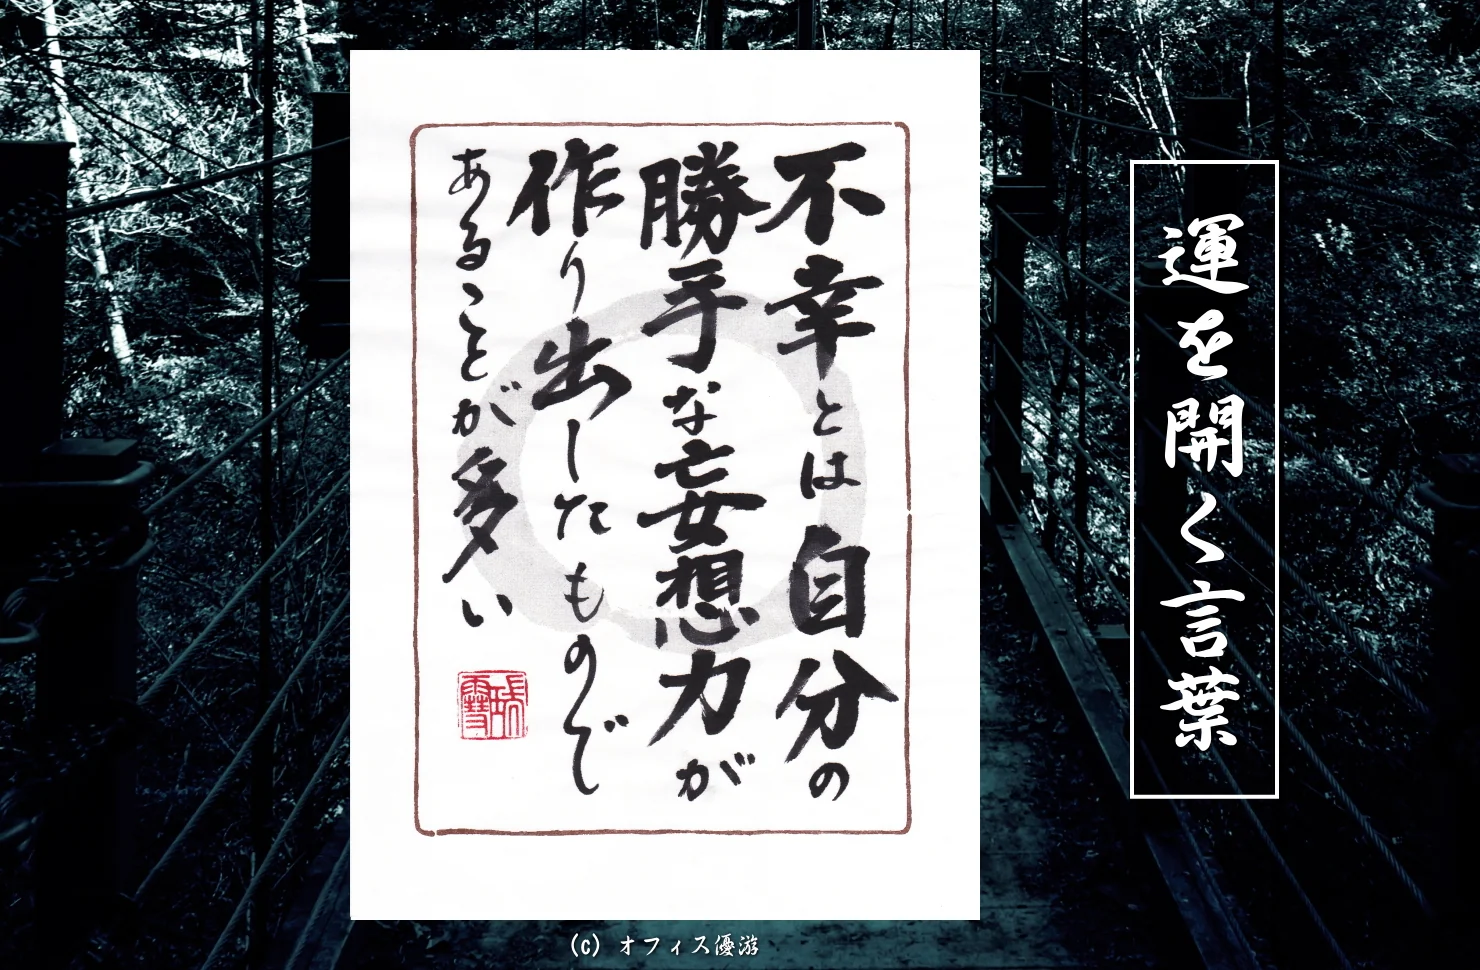 運を開く言葉
不幸とは自分の
勝手な妄想力が
作り出したもので
あることが多い
(c) オフィス優游